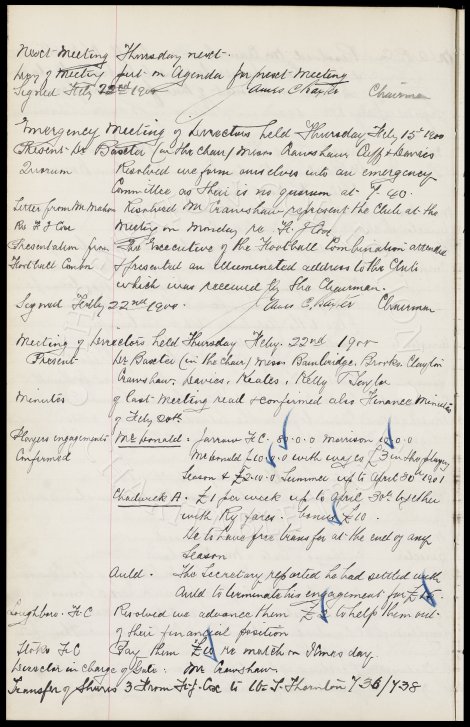 Next Meeting Thursday next.
Days of Meeting put on Agenda for next Meeting
Signed Feby 22nd 1900 James C Baxter Chairman
Emergency Meeting of Directors held Thursday Feby 15th 1900
Present Dr Baxter (in the chair) Messrs Crawshaw Cuff & Davies
Quorum Resolved we form ourselves into an emergency
Committee as their is no quorum at 7.40.
Letter from Mr Mahon Resolved Mr Crawshaw represent the Club at the
Re F J Cox Meeting on Monday re. F. J Cox
Presentation from The Executive of the Football Combination attended
Football Combn & presented an illuminated address to the Club
which was received by the Chairman.
Signed Feby 22nd 1900. James C. Baxter Chairman
Meeting of Directors held Thursday Feby. 22nd 1900
Present Dr Baxter (in the chair) Messrs Bainbridge, Brooks, Clayton
Crawshaw, Davies, Keates, Kelly & Taylor
Minutes of last Meeting read & confirmed also Finance Minutes
of Feby 20th
Players Engagements McDonald. Jarrow F.C. 80.0.0 Morrison 10.0.0
Confirmed McDonald £10.0.0 with wages £3 in the playing
Season & £2.10.0 Summer up to April 30th 1901
Chadwick A. £1 per week up to April 30th together
with Ry fares. bonus £10.
He to have free transfer at the end of any
Season
Auld. The Secretary reported he had settled with
Auld to terminate his engagement for
Loughboro. F.C Resolved we advance them to help them out
of their financial position
Stoke F.C Pay them £10 re match on Xmas day.
Director in charge of Gate. Mr Crawshaw.
Transfer of Shares 3 From F. J. Cox to W. T. Thornton 736/738